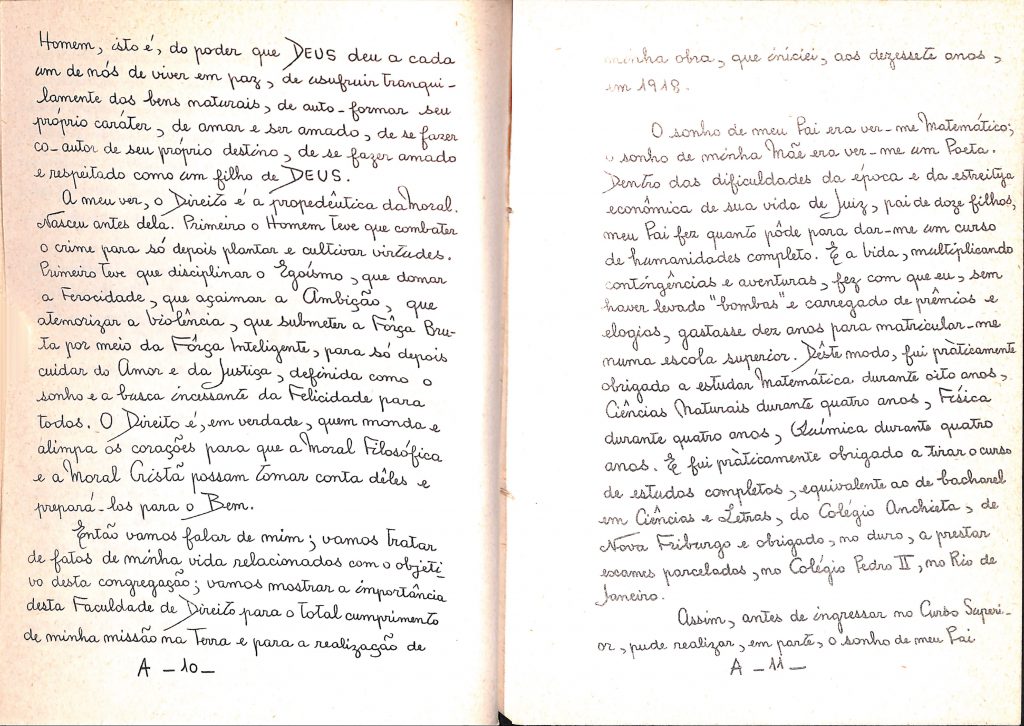 Homem, isto é, do poder que DEUS deu a cada
um de nós de viver em paz, de usufruir tranqui-
lamente dos bens naturais, de auto-formar seu
próprio caráter, de amar e ser amado, de se fazer
co-autor de seu próprio destino, de se fazer amado
e respeitado como um filho de DEUS.
A meu ver, o Direito é a propedêutica da Moral.
Nasceu antes dela. Primeiro o Homem teve que combater
o crime para só depois plantar e cultivar virtudes.
Primeiro teve que disciplinar o Egoísmo, que domar
a Ferocidade, que açaimar a Ambição, que
atemorizar a Violência, que submeter a Fôrça Bru-
ta por meio da Fôrça Inteligente, para só depois
cuidar do Amor e da Justiça, definida como o
sonho e a busca incessante da Felicidade para
todos. O Direito é, em verdade, quem monda e
alimpa os corações para que a Moral Filosófica
e a Moral Cristã possam tomar conta dêles e
prepará-los para o Bem.
Então vamos falar de mim; vamos tratar
de fatos de minha vida relacionados com o objeti-
vo desta congregação; vamos mostrar a importância
desta Faculdade de Direito para o total cumprimento
de minha missão na Terra e para a realização de
A - 10 -
minha obra, que iniciei, aos dezessete anos,
em 1918.
O sonho de meu Pai era ver-me Matemático;
o sonho de minha Mãe era ver-me um Poeta.
Dentro das dificuldades da época e da estreiteza
econômica de sua vida de Juiz, pai de doze filhos,
meu Pai fez quanto pôde para dar-me um curso
de humanidades completo. E a vida, multiplicando
contingências e aventuras, fez com que eu, sem
haver levado "bombas" e carregado de prêmios e
elogios, gastasse dez anos para matricular-me
numa escola superior. Dêste modo, fui pràticamente
obrigado a estudar Matemática durante oito anos,
Ciências Naturais durante quatro anos, Física
durante quatro anos, Química durante quatro
anos. E fui pràticamente obrigado a tirar o curso
de estudos completos, equivalente ao de bacharel
em Ciências e Letras, do Colégio Anchieta, de
Nova Friburgo e obrigado, no duro, a prestar
exames parcelados, no Colégio Pedro II, no Rio de
Janeiro.
Assim, antes de ingressar no Curso Superi-
or, pude realizar, em parte, o sonho de meu Pai
A - 11 -